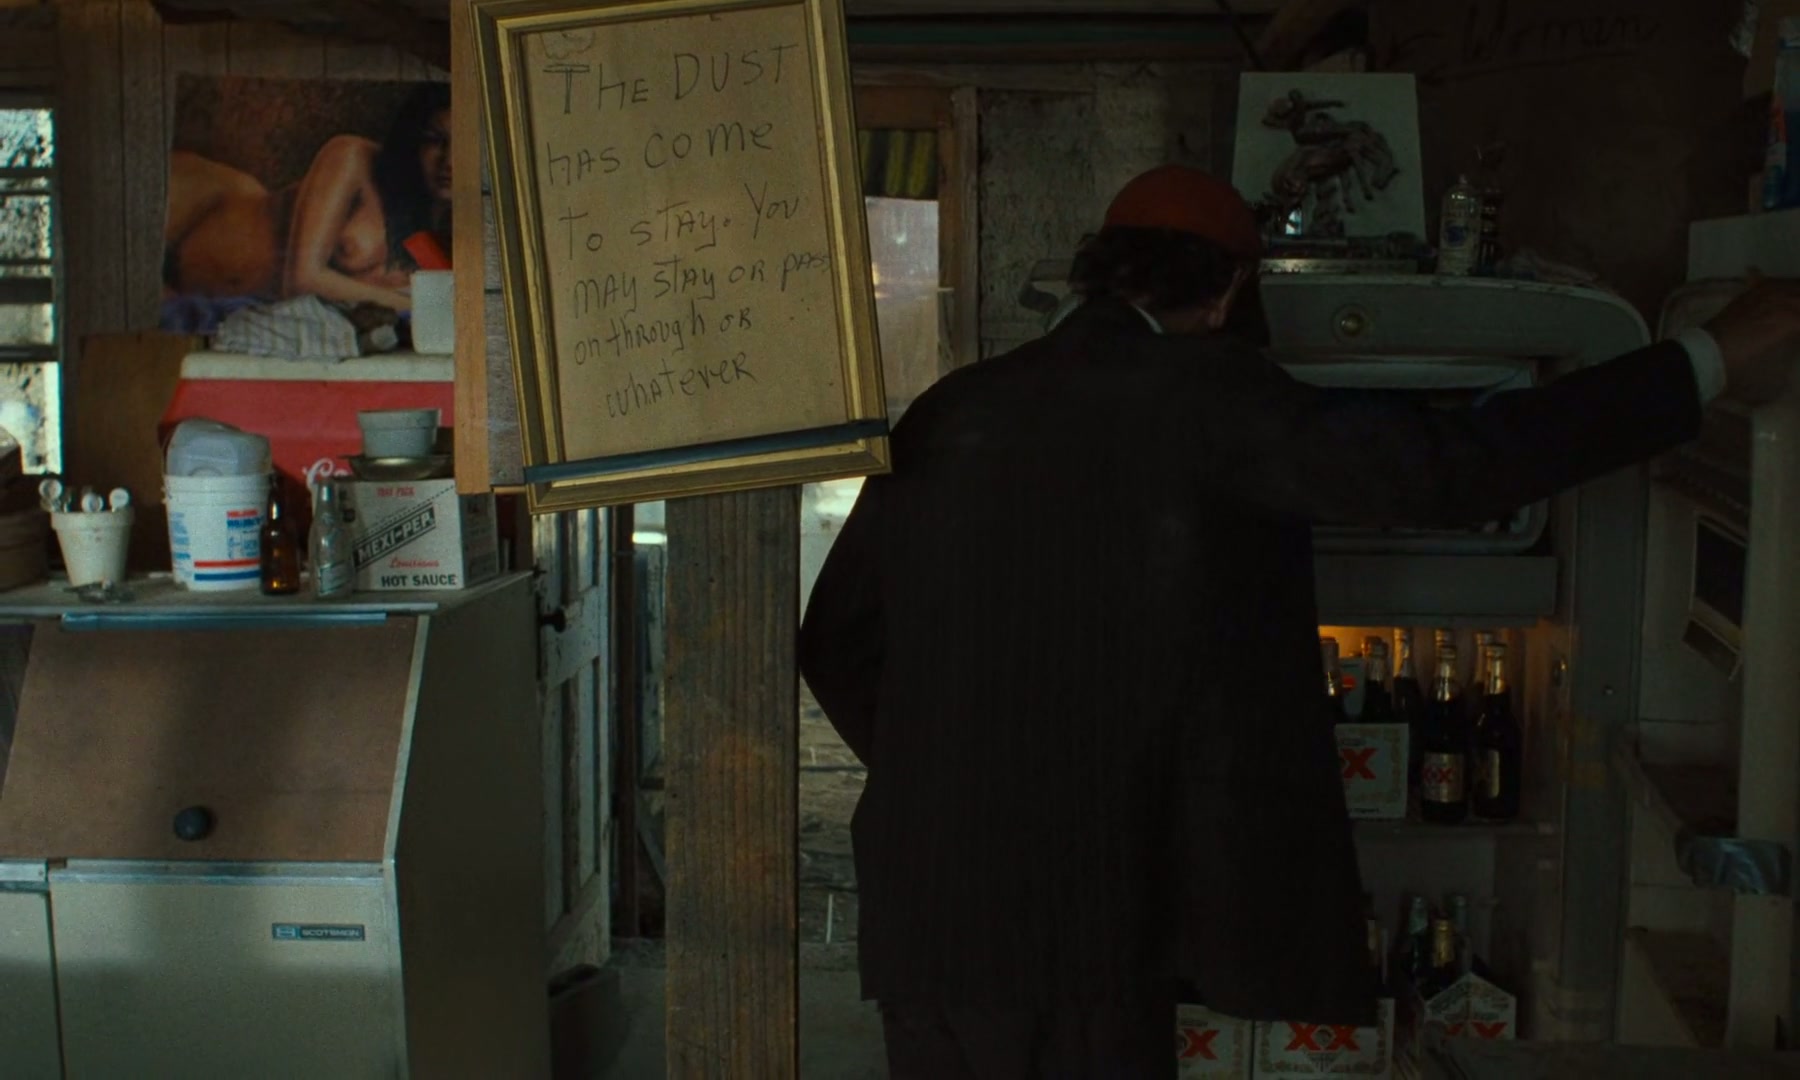 THE DUST
hAS COME
To STAY. YoU
MAY STAY OR PASS
on through OR
whatever
Women
MEXI-PEP
Louisiana
HOT SAUCE
SCOTSMAN
X
XX
X
XX
XX